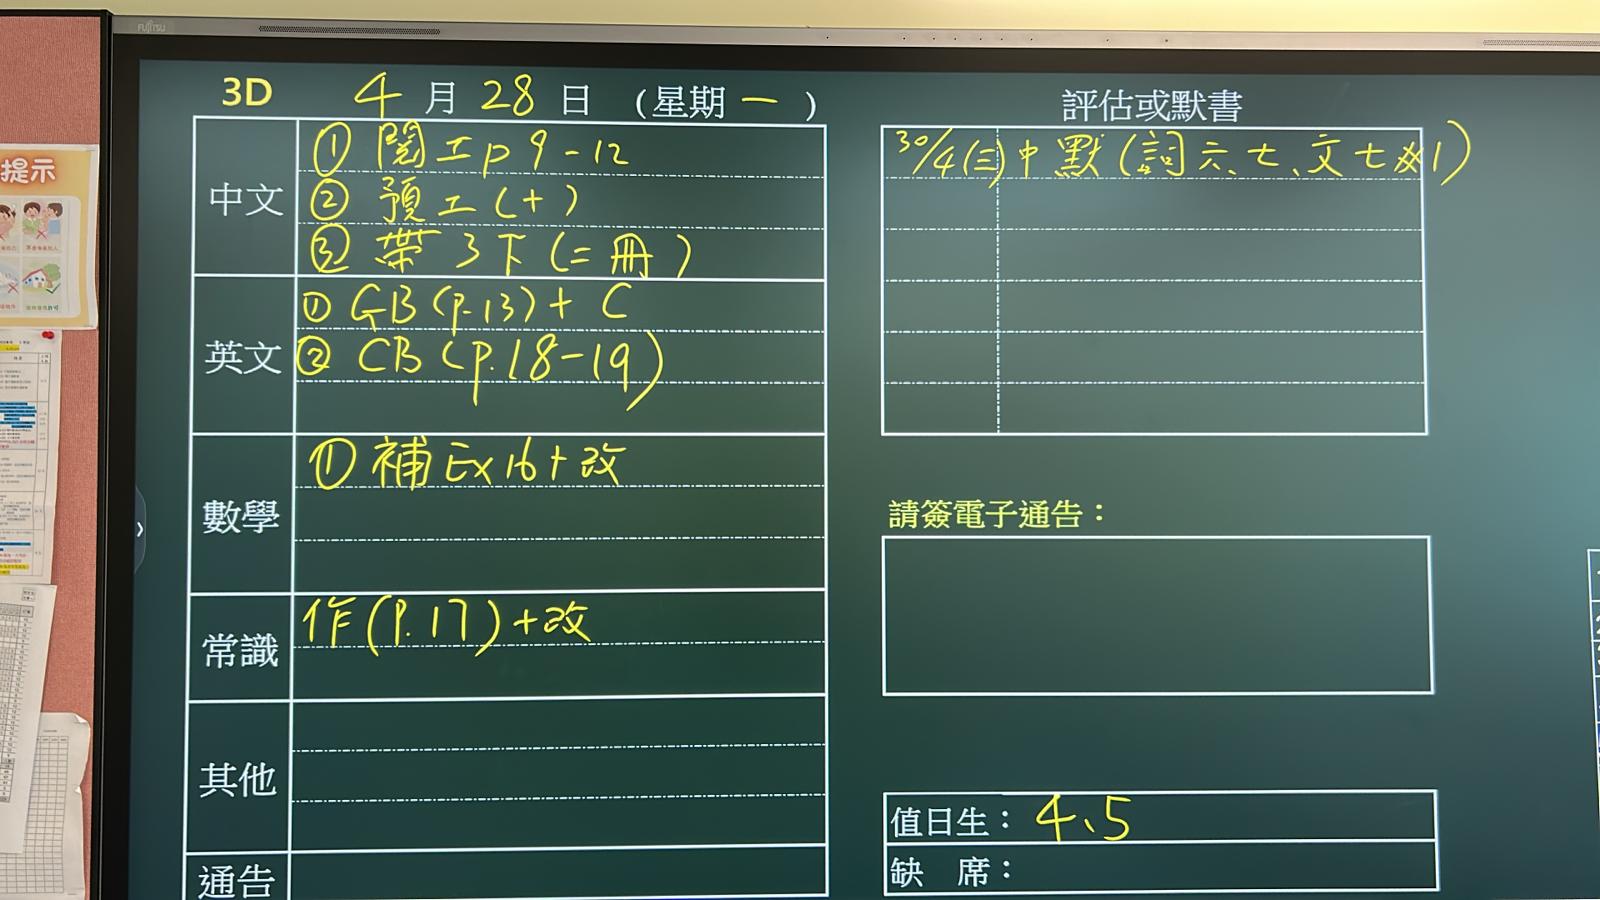 FUJITSU
3D 4月28日 (星期一)
中文
① 閱工p9-12
② 預工(十)
③ 帶3下(二冊)
英文
① GB(p.13)+C
② CB(p.18-19)
數學
① 補Ex16+改
常識
作(P.17)+改
其他
通告
評估或默書
30/4(三)中默(詞六、七、文七
請簽電子通告：
值日生：4、5
缺 席：
提示